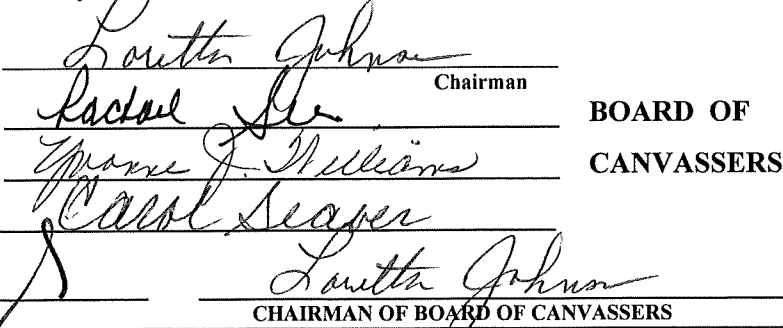 Loretta Johnson
Chairman
Rachael
BOARD OF
Yvonne J. Williams
CANVASSERS
Carol Seaver
Loretta Johnson
CHAIRMAN OF BOARD OF CANVASSERS